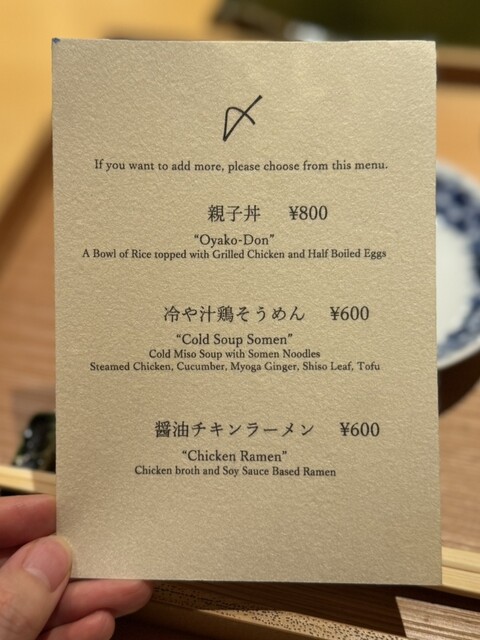 〆
If you want to add more, please choose from this menu.
親子丼 ¥800
“Oyako-Don”
A Bowl of Rice topped with Grilled Chicken and Half Boiled Eggs
冷や汁鶏そうめん ¥600
“Cold Soup Somen”
Cold Miso Soup with Somen Noodles
Steamed Chicken, Cucumber, Myoga Ginger, Shiso Leaf, Tofu
醤油チキンラーメン ¥600
“Chicken Ramen”
Chicken broth and Soy Sauce Based Ramen